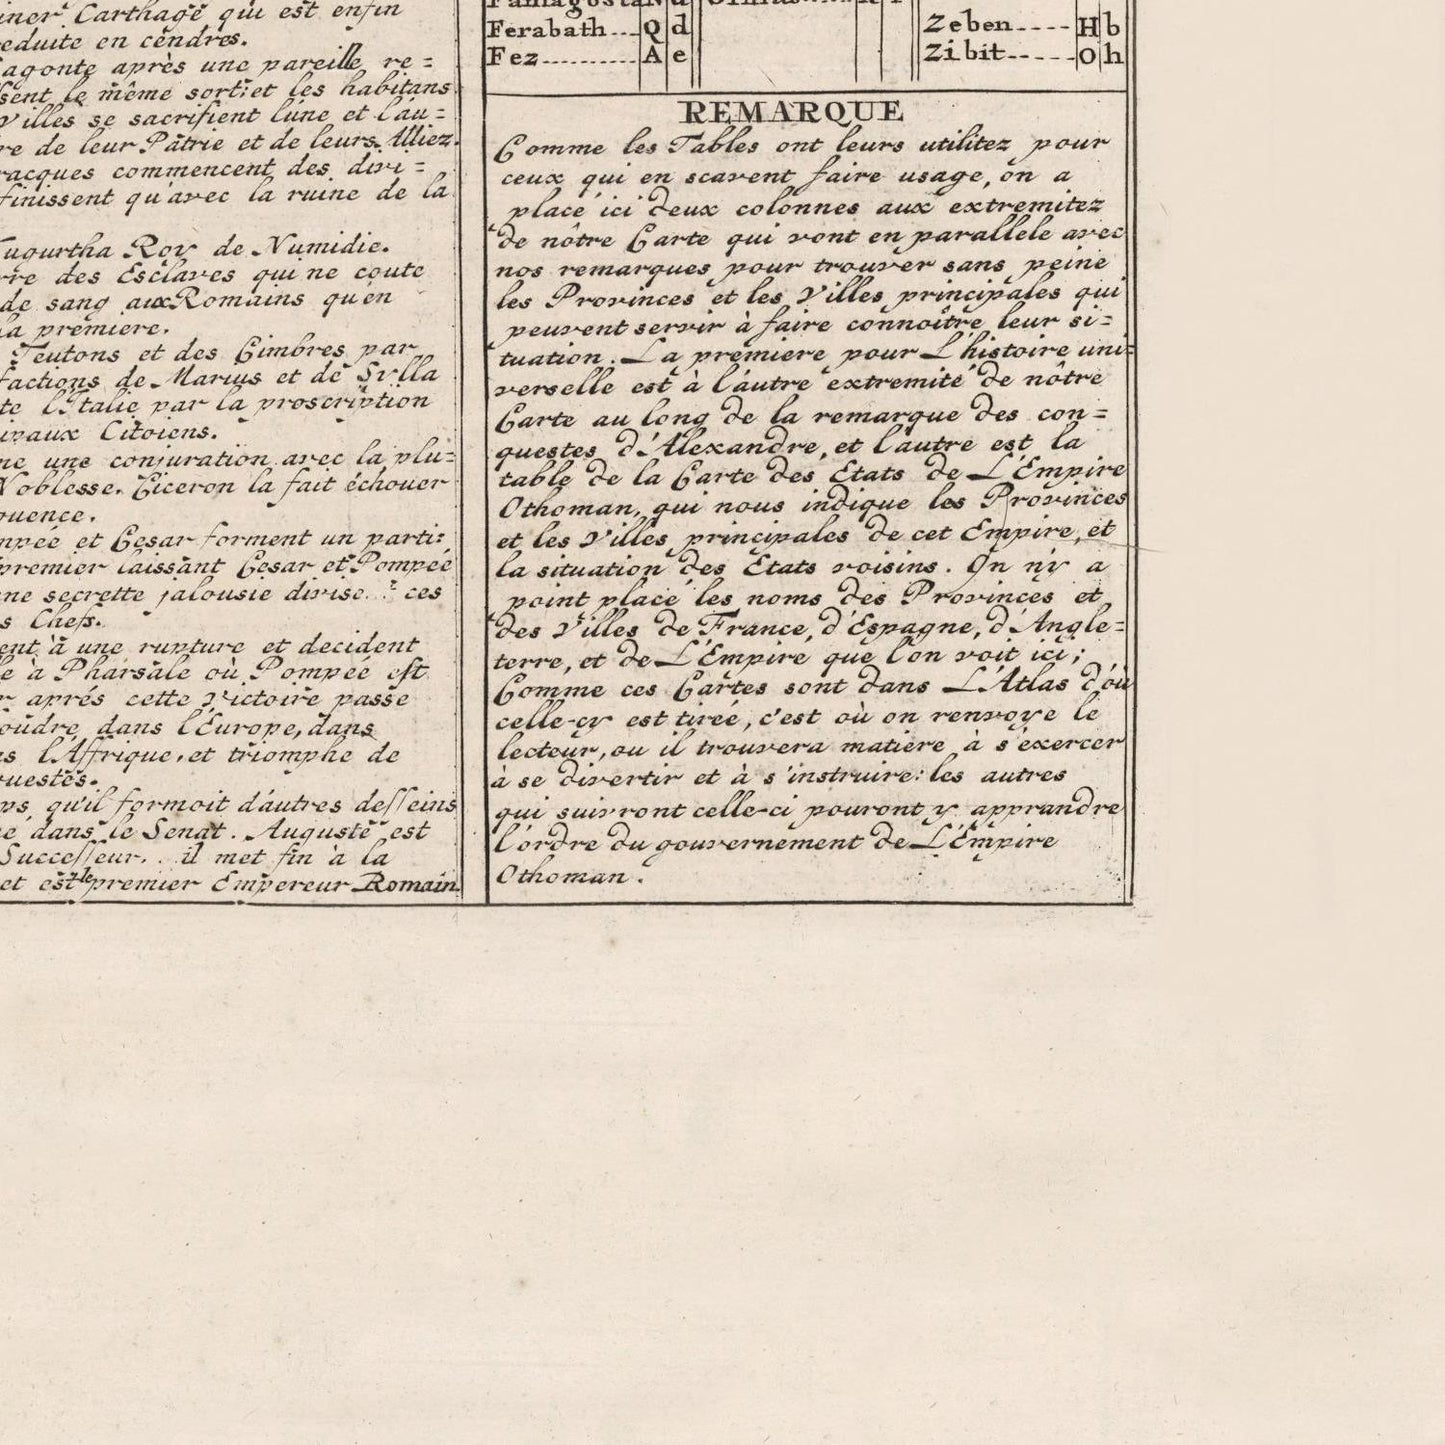 Carthage qui est enfin
en cendres.
après une pareille re=
le même sort: et les habitans
se sacrifient l'une et l'au=
de leur Pâtrie et de leurs Alliez.
commencent des divi=
finissent qu'avec la ruine de la
Roy de Numidie.
des Esclaves qui ne coute
de sang aux Romains qu'en
la premiere.
Teutons et des Cimbres par
factions de Marius et de Sylla
l'Italie par la proscription
Citoiens.
une conjuration avec la plu=
Noblesse. Ciceron la fait échouer
et Cesar forment un parti:
premier laissant Cesar et Pompée
secrette jalousie divise ces
Chefs.
à une rupture et decident
à Pharsale où Pompée est
aprés cette Victoire passe
dans l'Europe, dans
l'Affrique, et triomphe de
qu'il formoit d'autres desseins
dans le Senat. Auguste est
Successeur. il met fin à la
et est le premier Empereur Romain.
Ferabath Q d
Fez A e
Zeben H b
Zibit O h
REMARQUE
Comme les Tables ont leurs utilitez pour
ceux qui en scavent faire usage, on a
placé ici deux colonnes aux extremitez
de nôtre Carte qui vont en parallele avec
nos remarques pour trouver sans peine
les Provinces et les Villes principales qui
peuvent servir à faire connoître leur si=
tuation. La premiere pour L'histoire uni=
verselle est à l'autre extremité de nôtre
Carte au long de la remarque des con=
questes d'Alexandre, et l'autre est la
table de la Carte des Etats de L'Empire
Othoman, qui nous indique les Provinces
et les Villes principales de cet Empire, et
la situation des Etats voisins. On n'y a
point placé les noms des Provinces et
des Villes de France, d'Espagne, d'Angle=
terre, et de L'Empire que l'on voit ici;
Comme ces Cartes sont dans L'Atlas d'où
celle-cy est tirée, c'est où on renvoye le
lecteur, ou il trouvera matiere à s'exercer
à se divertir et à s'instruire: les autres
qui suivront celle-ci pouront y apprandre
l'ordre du gouvernement de L'Empire
Othoman.